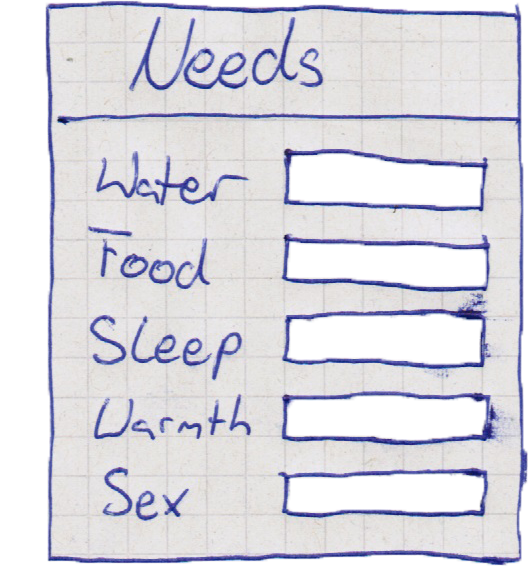 Needs
Water
Food
Sleep
Warmth
Sex